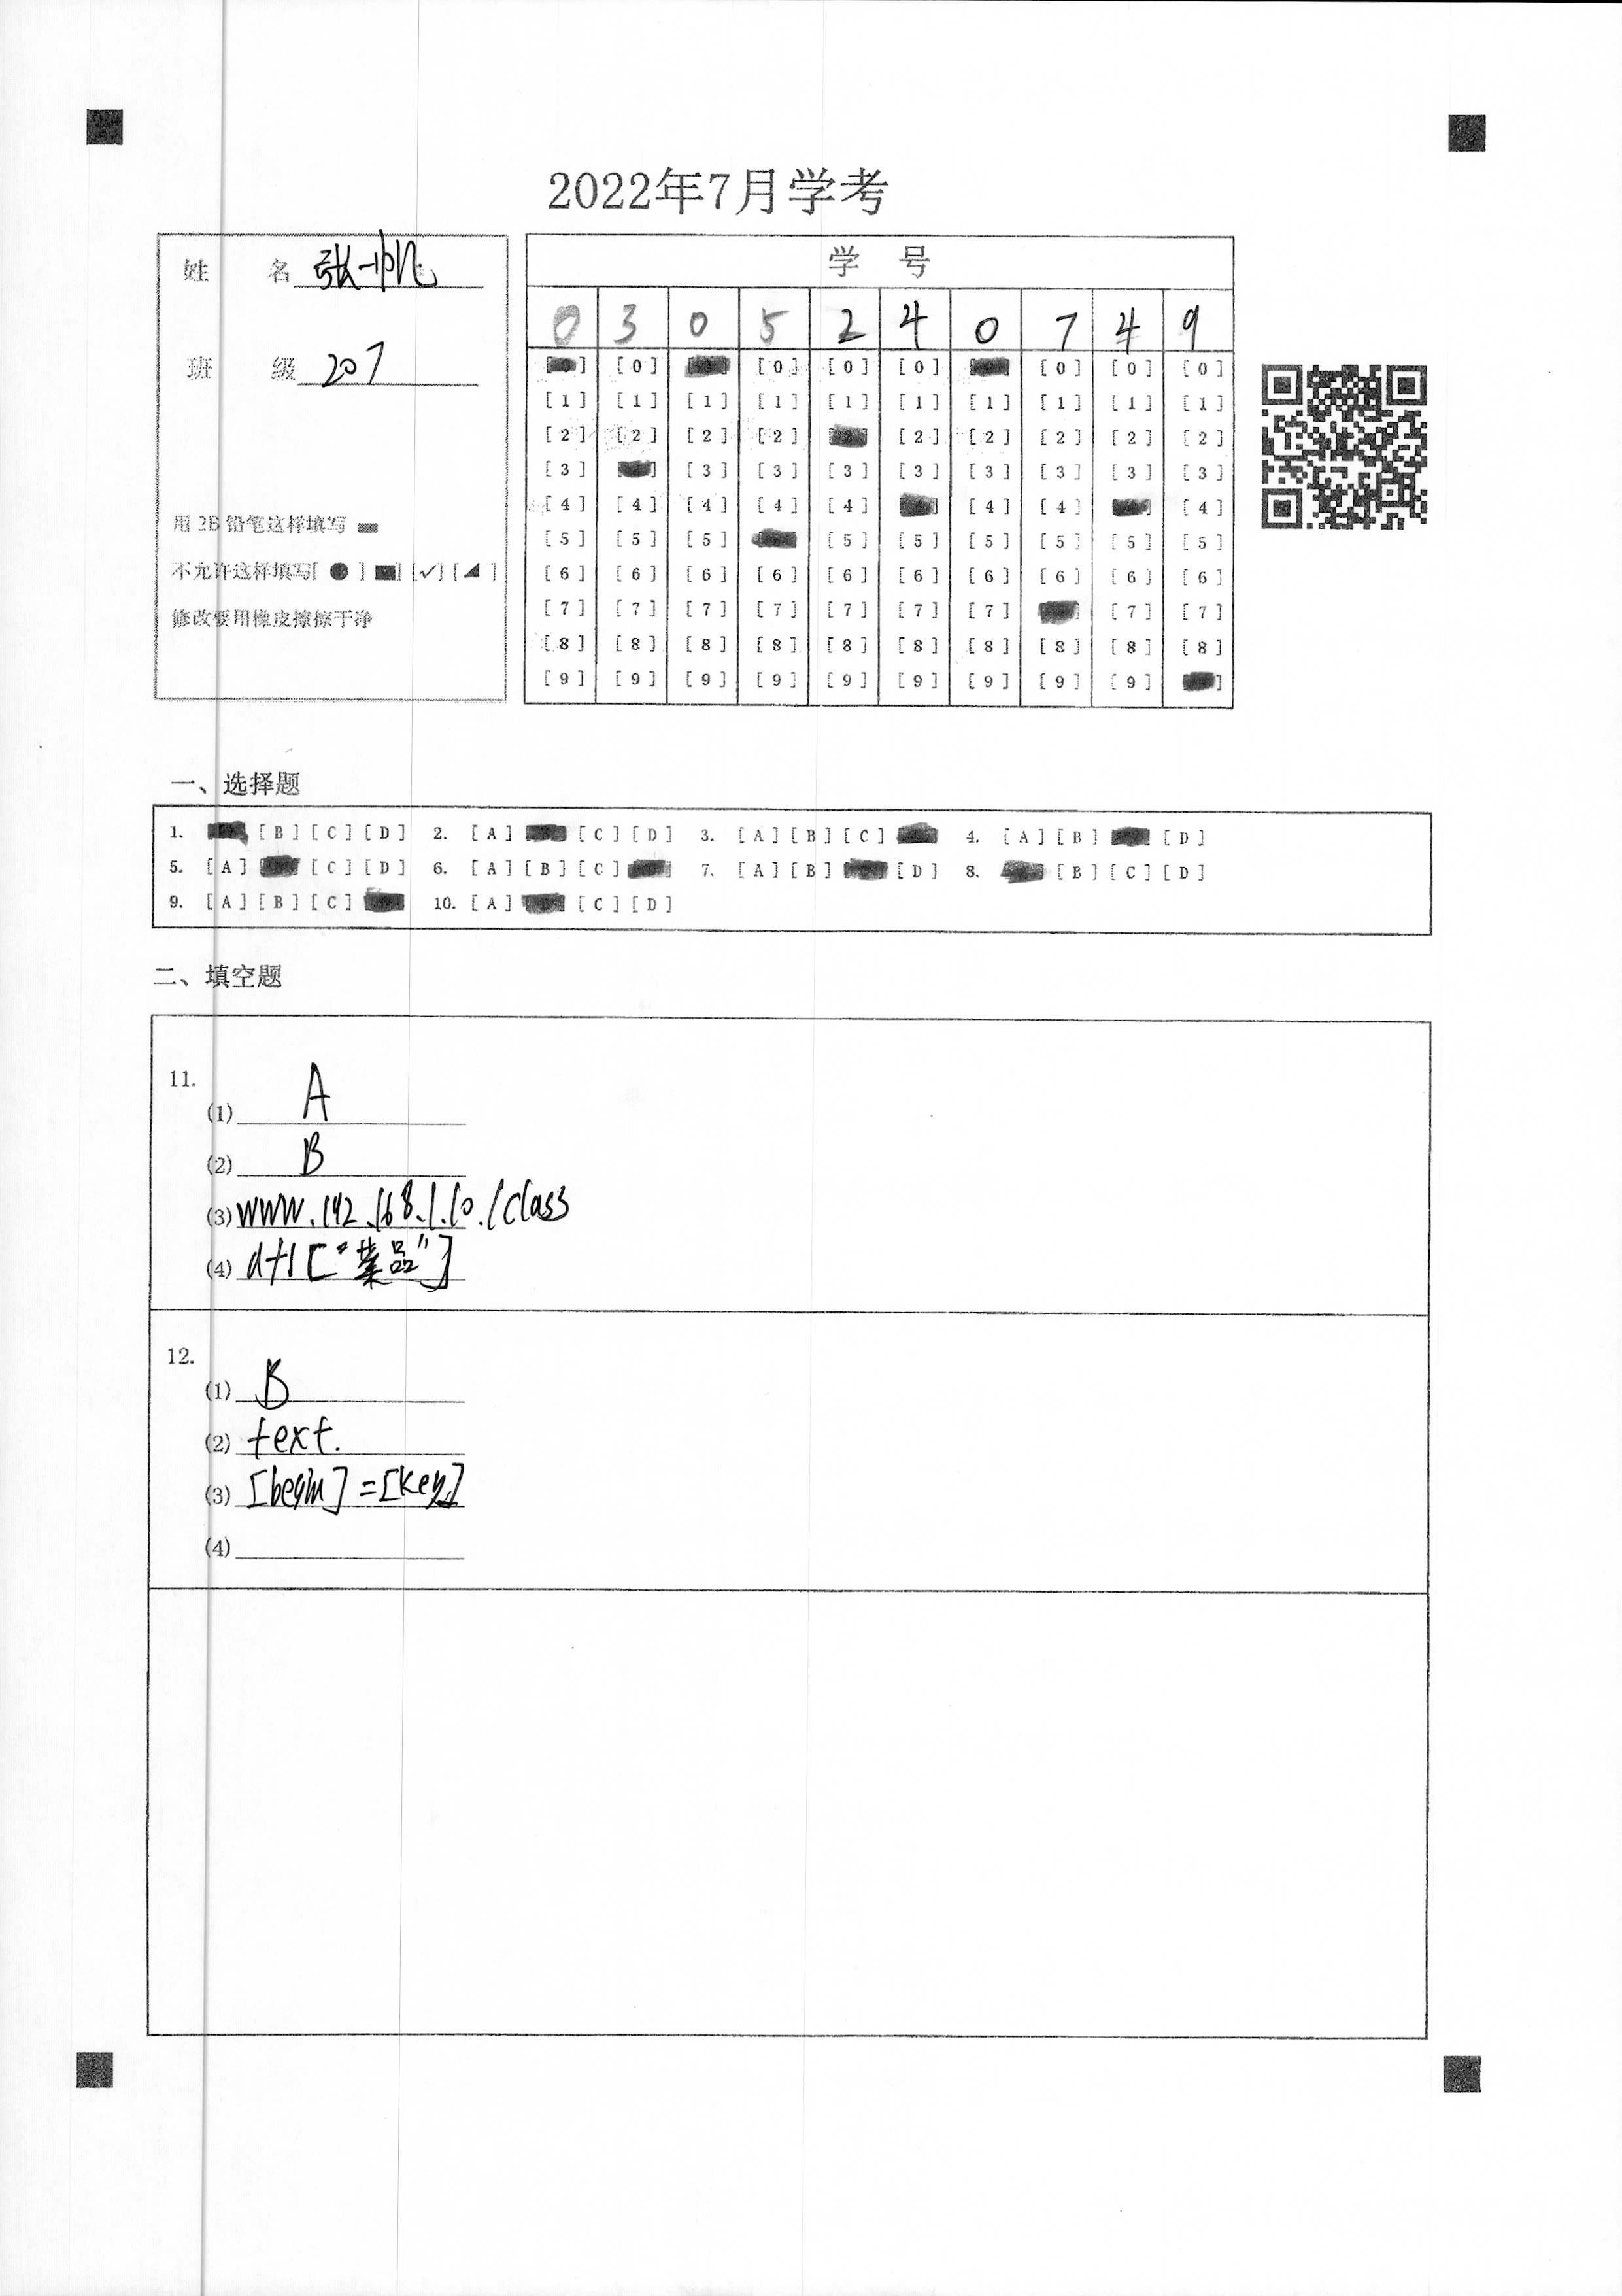 2022年7月学考
姓 名 张一帆
班 级 207
用 2B 铅笔这样填写
不允许这样填写[ ● ] [■] [✓] [◢ ]
修改要用橡皮擦擦干净
学 号
0 3 0 5 2 4 0 7 4 9
[0] [0] [0] [0] [0] [0] [0]
[1] [1] [1] [1] [1] [1] [1] [1] [1] [1]
[2] [2] [2] [2] [2] [2] [2] [2] [2]
[3] [3] [3] [3] [3] [3] [3] [3] [3]
[4] [4] [4] [4] [4] [4] [4] [4]
[5] [5] [5] [5] [5] [5] [5] [5] [5]
[6] [6] [6] [6] [6] [6] [6] [6] [6] [6]
[7] [7] [7] [7] [7] [7] [7] [7] [7]
[8] [8] [8] [8] [8] [8] [8] [8] [8] [8]
[9] [9] [9] [9] [9] [9] [9] [9] [9]
一、选择题
1. [B] [C] [D] 2. [A] [C] [D] 3. [A] [B] [C] 4. [A] [B] [D]
5. [A] [C] [D] 6. [A] [B] [C] 7. [A] [B] [D] 8. [B] [C] [D]
9. [A] [B] [C] 10. [A] [C] [D]
二、填空题
11.
(1) A
(2) B
(3) www.192.168.1.10./class
(4) df1["菜品"]
12.
(1) B
(2) text.
(3) [begin]=[key]
(4)